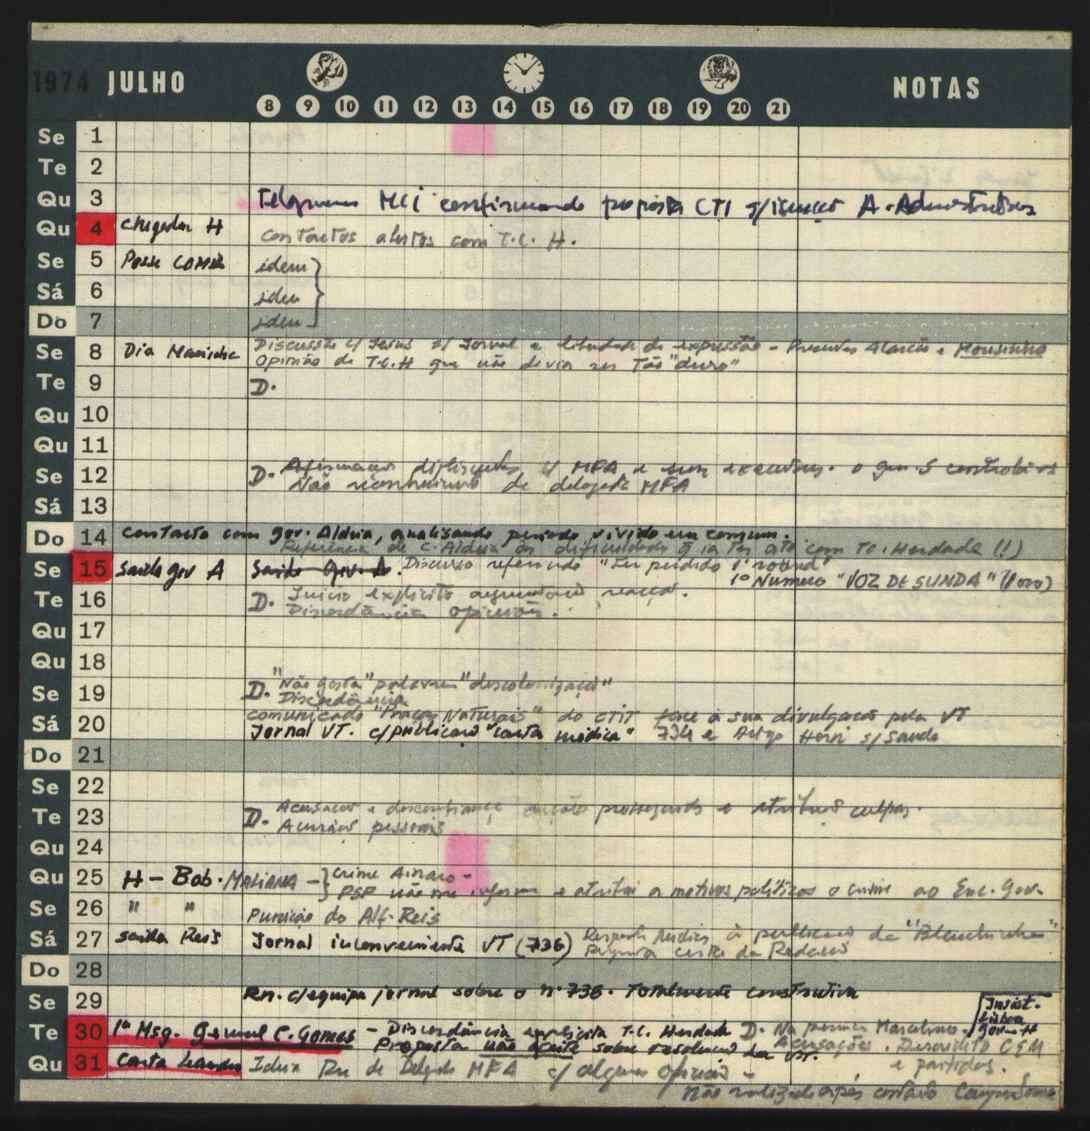 1974 JULHO NOTAS
8 9 10 11 12 13 14 15 16 17 18 19 20 21
Se 1
Te 2
Qu 3 Telegrama MCI confirmando proposta CTI A. Administrativa
Qu 4 chegada H contactos abertos com T.C. H.
Se 5 Posse idem
Sá 6 idem
Do 7 idem
Se 8 Dia Marinha Discussão c/ Jesus s/ Jornal e liberdade de expressão - Presentes Alarcão e Mousinho
Opinião de T.C.H que não devia ser Tão "duro"
Te 9 D.
Qu 10
Qu 11
Se 12 D. Afirmacao c/ MFA e sem executivos. o que s controla os
Não reconhecimento de delegado MFA
Sá 13
Do 14 contacto com gov. Aldeia, analisando periodo vivido em comum.
Referência de C. Aldeia às dificuldades q ia ter com TC. Herdade (!)
Se 15 saída gov A Saída Gov. A. Discurso referindo "Ter perdido 1º round"
1º Numero "VOZ DE SUNDA" (Povo)
Te 16 D. Início explícito reacção.
Discordância opiniões.
Qu 17
Qu 18
Se 19 D. "Não gosta" palavra "descolonização"
Discordância
Sá 20 comunicado "Forças Naturais" do CTIT face à sua divulgacao pela VT
Jornal VT. c/publicaçao "carta médica" 734 e Artigo Horni s/ Saude
Do 21
Se 22
Te 23 D. Acusacoes e desconfiança e atribui culpas.
Acusações pessoais
Qu 24
Qu 25 H - Bob. MALIANA - Crime Ainaro -
PSP não me informa e atribui a motivos politicos o crime ao Enc. Gov.
Se 26 " " Punição do Alf. Reis
Sá 27 saída Reis Jornal inconveniente VT (736) Resposta Medica à publicacao da
Resposta da Redacção
Do 28
Se 29 Rn. c/equipa jornal sobre o nº 736. Totalmente construtiva
Te 30 1ª Msg. General C. Gomes - Discordância explícita T.C. Herdade D. Na posse Marcelino.
Insist. Lisboa gov. H
Proposta não aceite sobre resolucao da VT. Acusações. Descrédito CEM
e partidos.
Qu 31 Carta Leandro Ideia Rn de Delegado MFA c/ alguns oficiais -
Não realizada após contacto